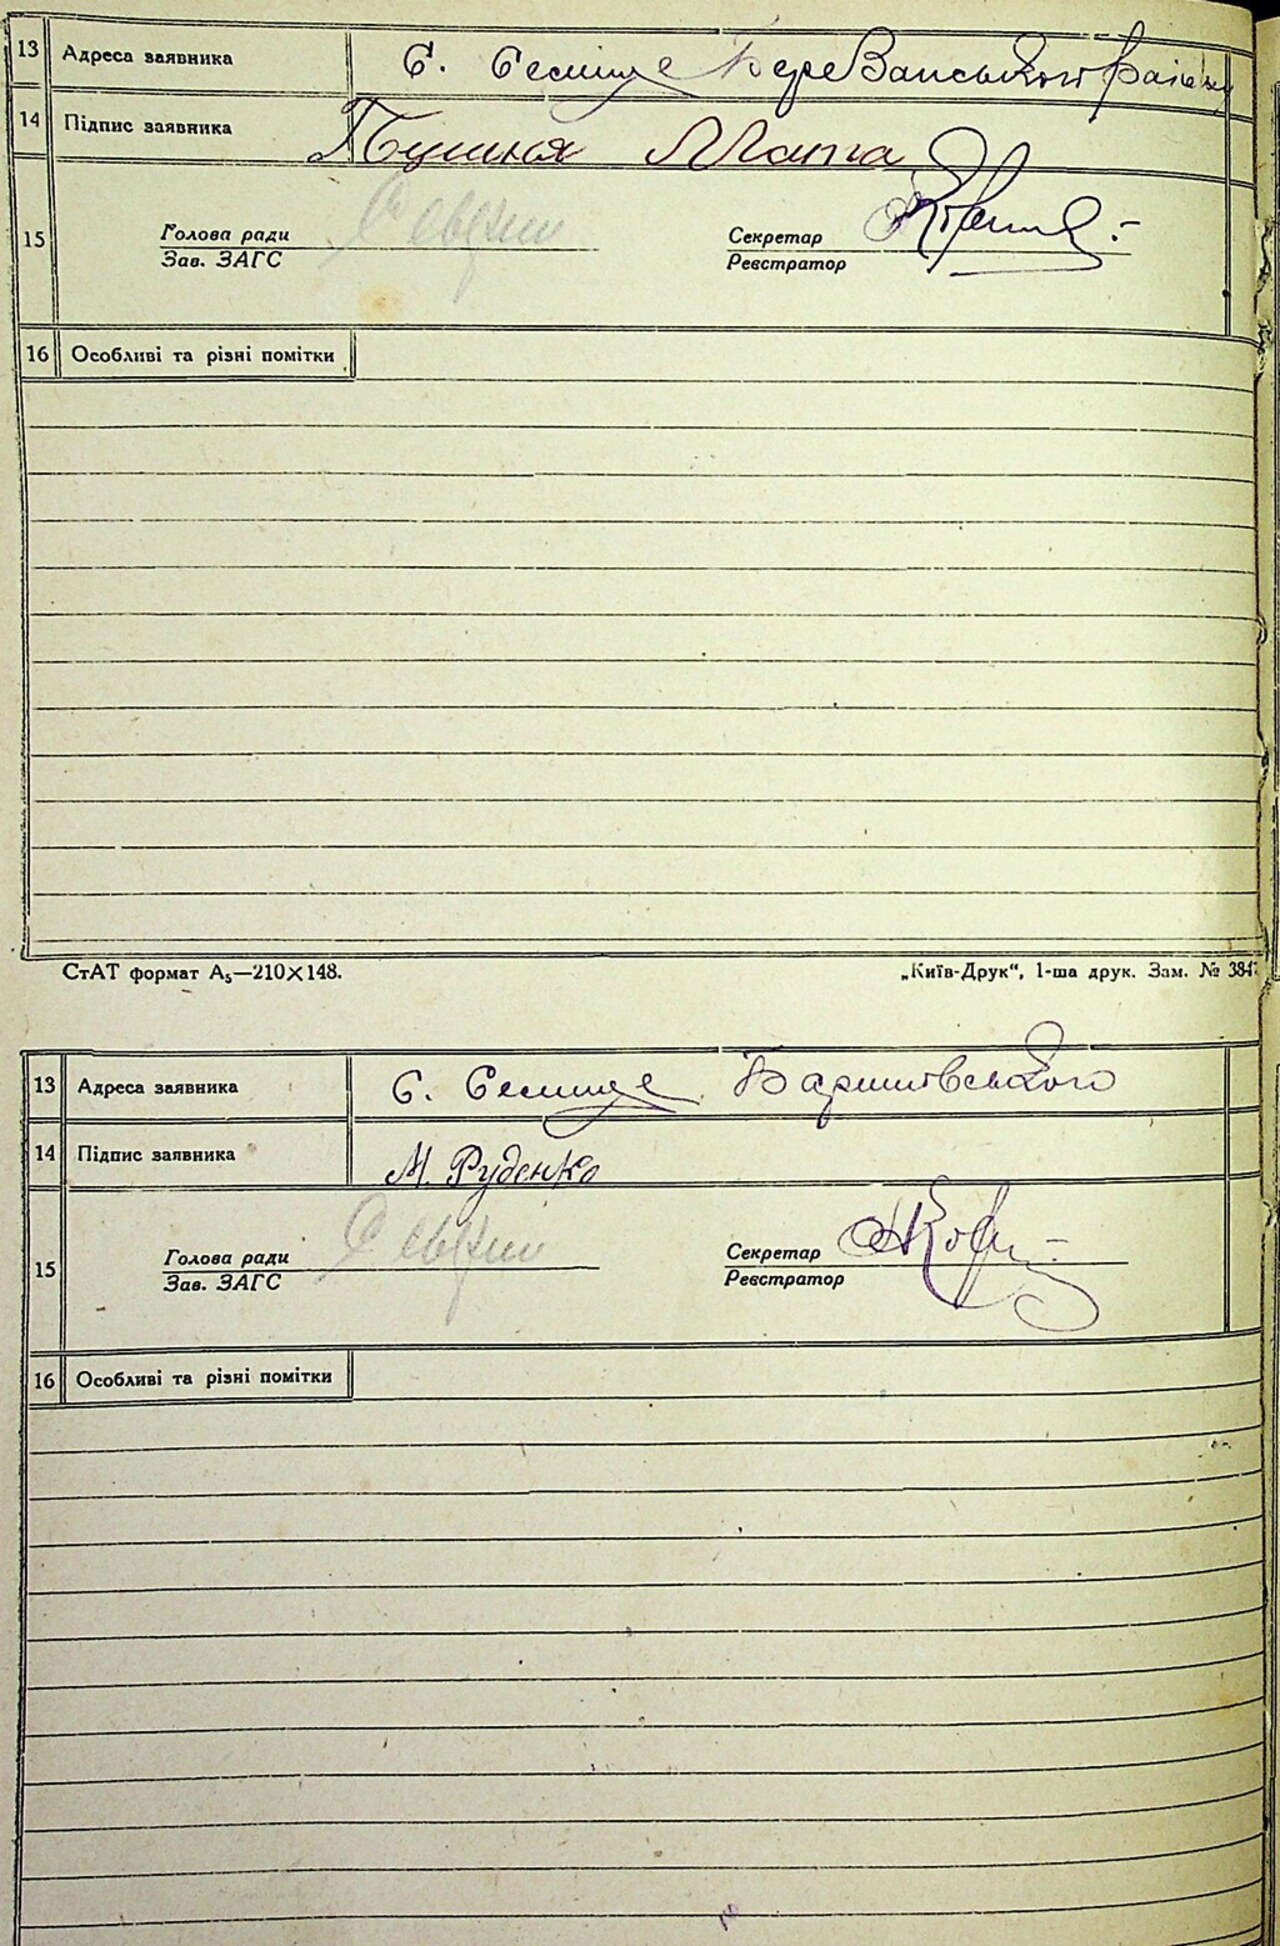 13 Адреса заявника С. Селище Березанського району
14 Підпис заявника Пушня Мота
15 Голова ради Секретар
Зав. ЗАГС Реєстратор
16 Особливі та різні помітки
СтАТ формат А₅—210×148. „Київ-Друк“, 1-ша друк. Зам. № 384
13 Адреса заявника С. Селище Баришівського
14 Підпис заявника М. Руденко
15 Голова ради Секретар
Зав. ЗАГС Реєстратор
16 Особливі та різні помітки